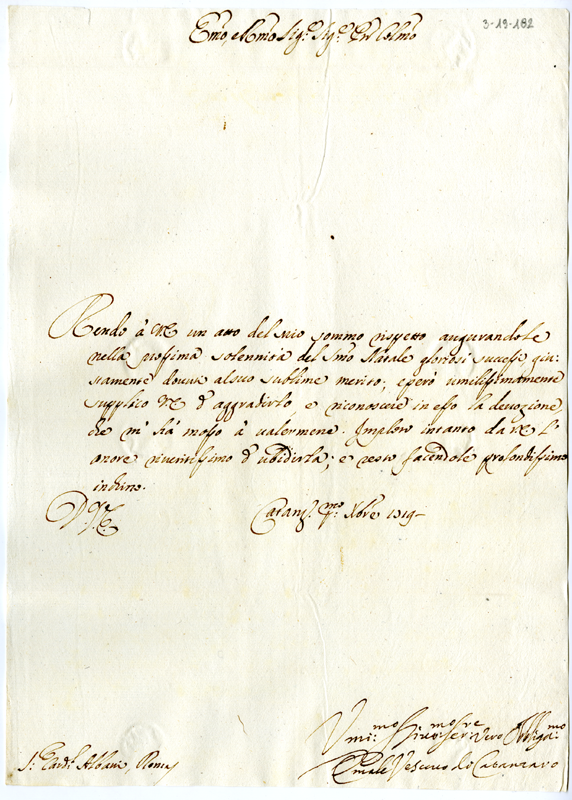 3-19-182
Emo, e Rmo Sig.r Sig.r Prōn Colmo
Rendo à V.E. un atto del mio sommo rispetto augurandole
nella prossima solennità del Smo Natale gloriosi successi, giu:
stamente dovuti al suo sublime merito; e però umilissimamente
supplico V.E. d'aggradirlo, e riconoscere in esso la devozione,
che m'hà mosso à valermene. Imploro intanto da V.E. l'
onore riveritissimo d'ubidirla; e resto facendole profondissimo
inchino.
D. V. E.
Catanz.o p.mo Xbre 1719
Vmi.mo Divo.mo ser.re Vero Obliga.mo
Emanle Vescovo di Catanzaro
S.r Card.l Albani, Roma